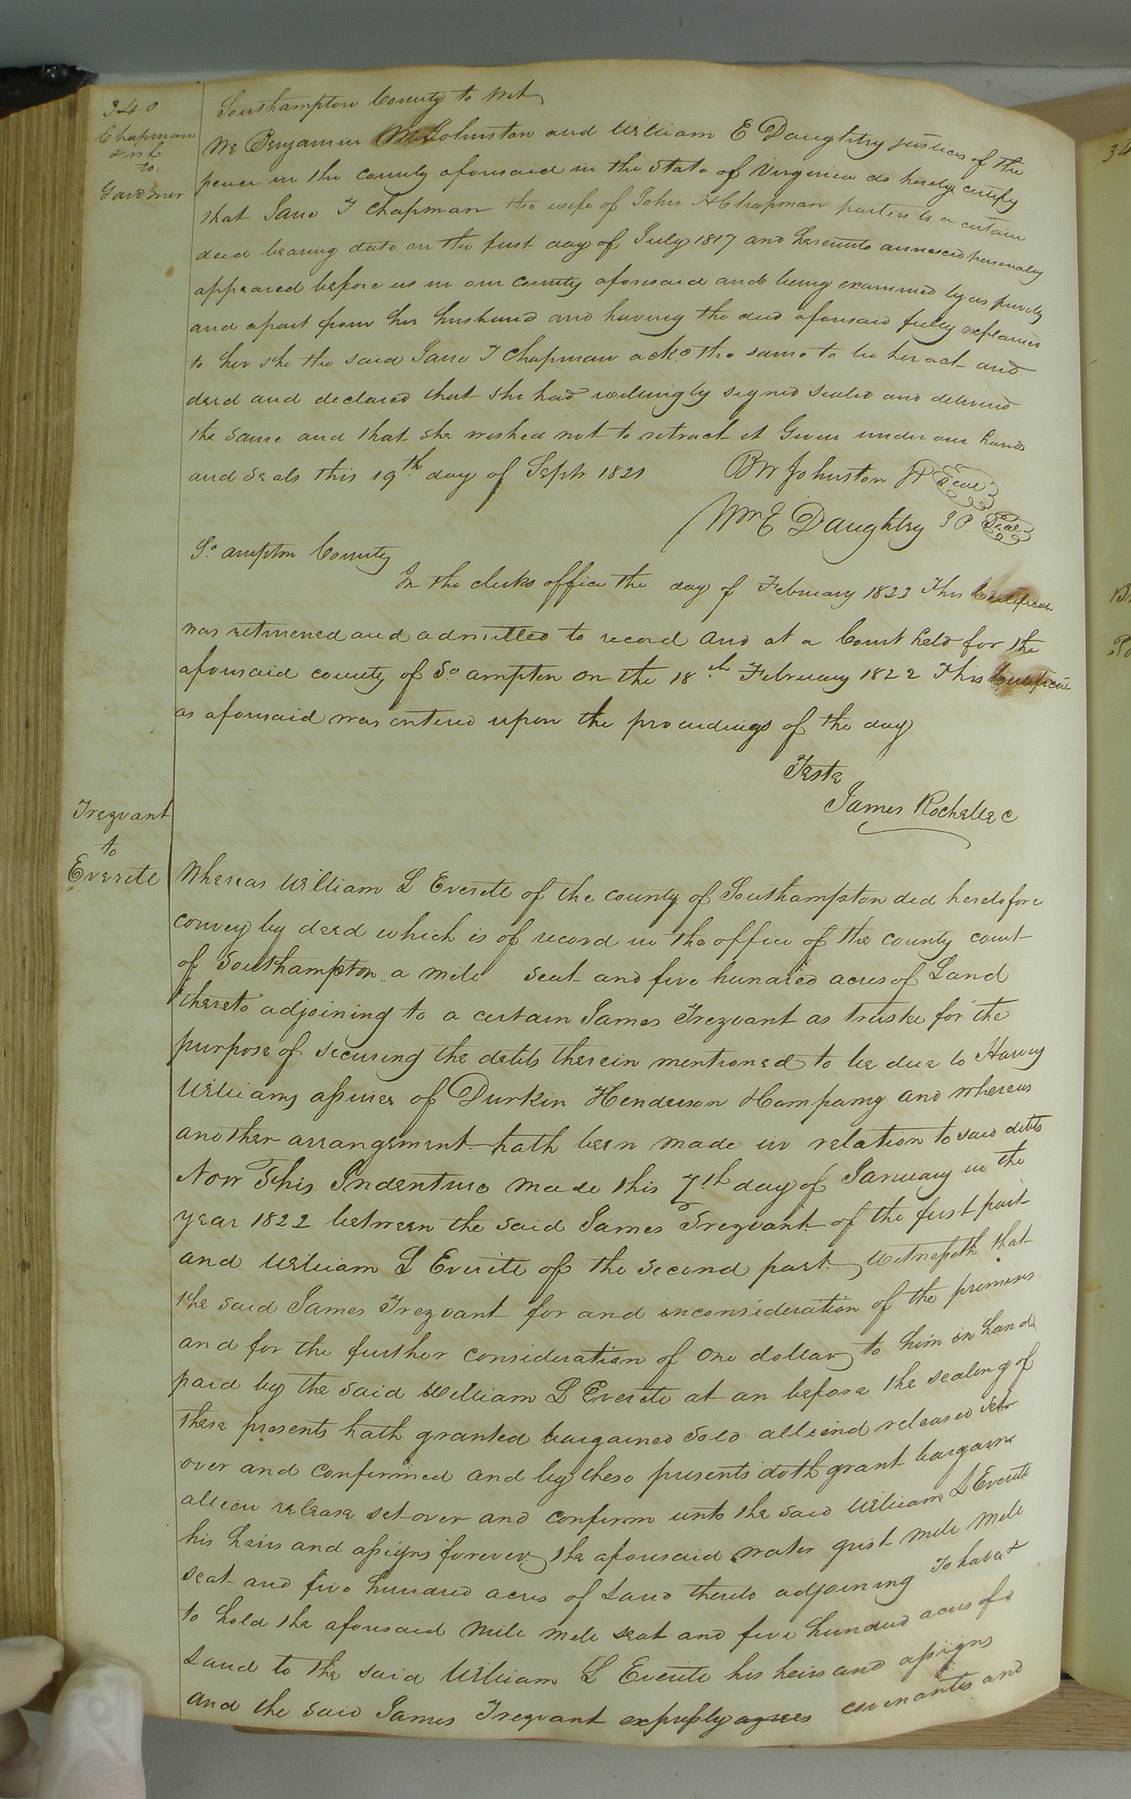 340
Chapman
to
Gardner
Southampton County to wit
We Benjamin W Johnston and William E Daughtry justices of the
peace in the county aforesaid in the State of Virginia do hereby certify
that Jane T Chapman the wife of John H Chapman parties to a certain
deed bearing date on the first day of July 1817 and hereunto annexed personally
appeared before us in our County aforesaid and being examined by us privily
and apart from her husband and having the deed aforesaid fully explained
to her she the said Jane T Chapman ack.d the same to be her act and
deed and declared that she had willingly signed sealed and delivered
the same and that she wished not to retract it Given under our hands
and seals this 19th day of Sept 1821 BW Johnston JP Seal
Wm E Daughtry J P. Seal
So ampton County
In the clerks office the day of February 1822 This Certificate
was returned and admitted to record and at a Court held for the
aforesaid county of So ampton on the 18th February 1822 This Certificate
as aforesaid was entered upon the proceedings of the day
Teste
James Rochelle C
Trezvant
to
Everete
Whereas William L Everete of the county of Southampton did heretofore
convey by deed which is of record in the office of the county court
of Southampton a mile seat and five hundred acres of Land
thereto adjoining to a certain James Trezvant as trustee for the
purpose of securing the debts therein mentioned to be due to Harvy
Williams assinee of Durkin Henderson Hompamy and whereas
another arrangement hath been made in relation to said debts
Now This Indenture made this 7th day of January in the
year 1822 between the said James Trezvant of the first part
and William L Everete of the second part witnesseth that
the said James Trezvant for and inconsideration of the premises
and for the further consideration of one dollar to him in hand
paid by the said William L Everete at an before the sealing of
these presents hath granted bargained sold alliend released set
over and confirmed and by these presents doth grant bargain
alien release set over and confirm unto the said William L Everete
his heirs and assigns forever the aforesaid water grist mile mile
seat and five hundred acres of Land thereto adjoining To have &
to hold the aforesaid mile mile seat and five hundred acres of
Land to the said William L Everete his heirs and assigns
and the said James Trezvant expressly agrees covenants and